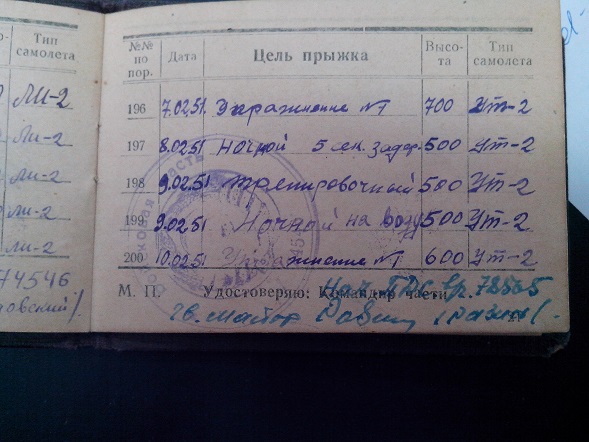 Тип
самолета
Ли-2
Ли-2
Ли-2
Ли-2
Ли-2
74546
№№ по пор. Дата Цель прыжка Высота Тип самолета
196 7.02.51 Упражнение №1 700 Ут-2
197 8.02.51 Ночной 5 сек. задер. 500 Ут-2
198 9.02.51 тренировочный 500 Ут-2
199 9.02.51 Ночной на воду 500 Ут-2
200 10.02.51 Упражнение №1 600 Ут-2
М. П. Удостоверяю: Командир части
Нач. ПДС 78565
гв. майор